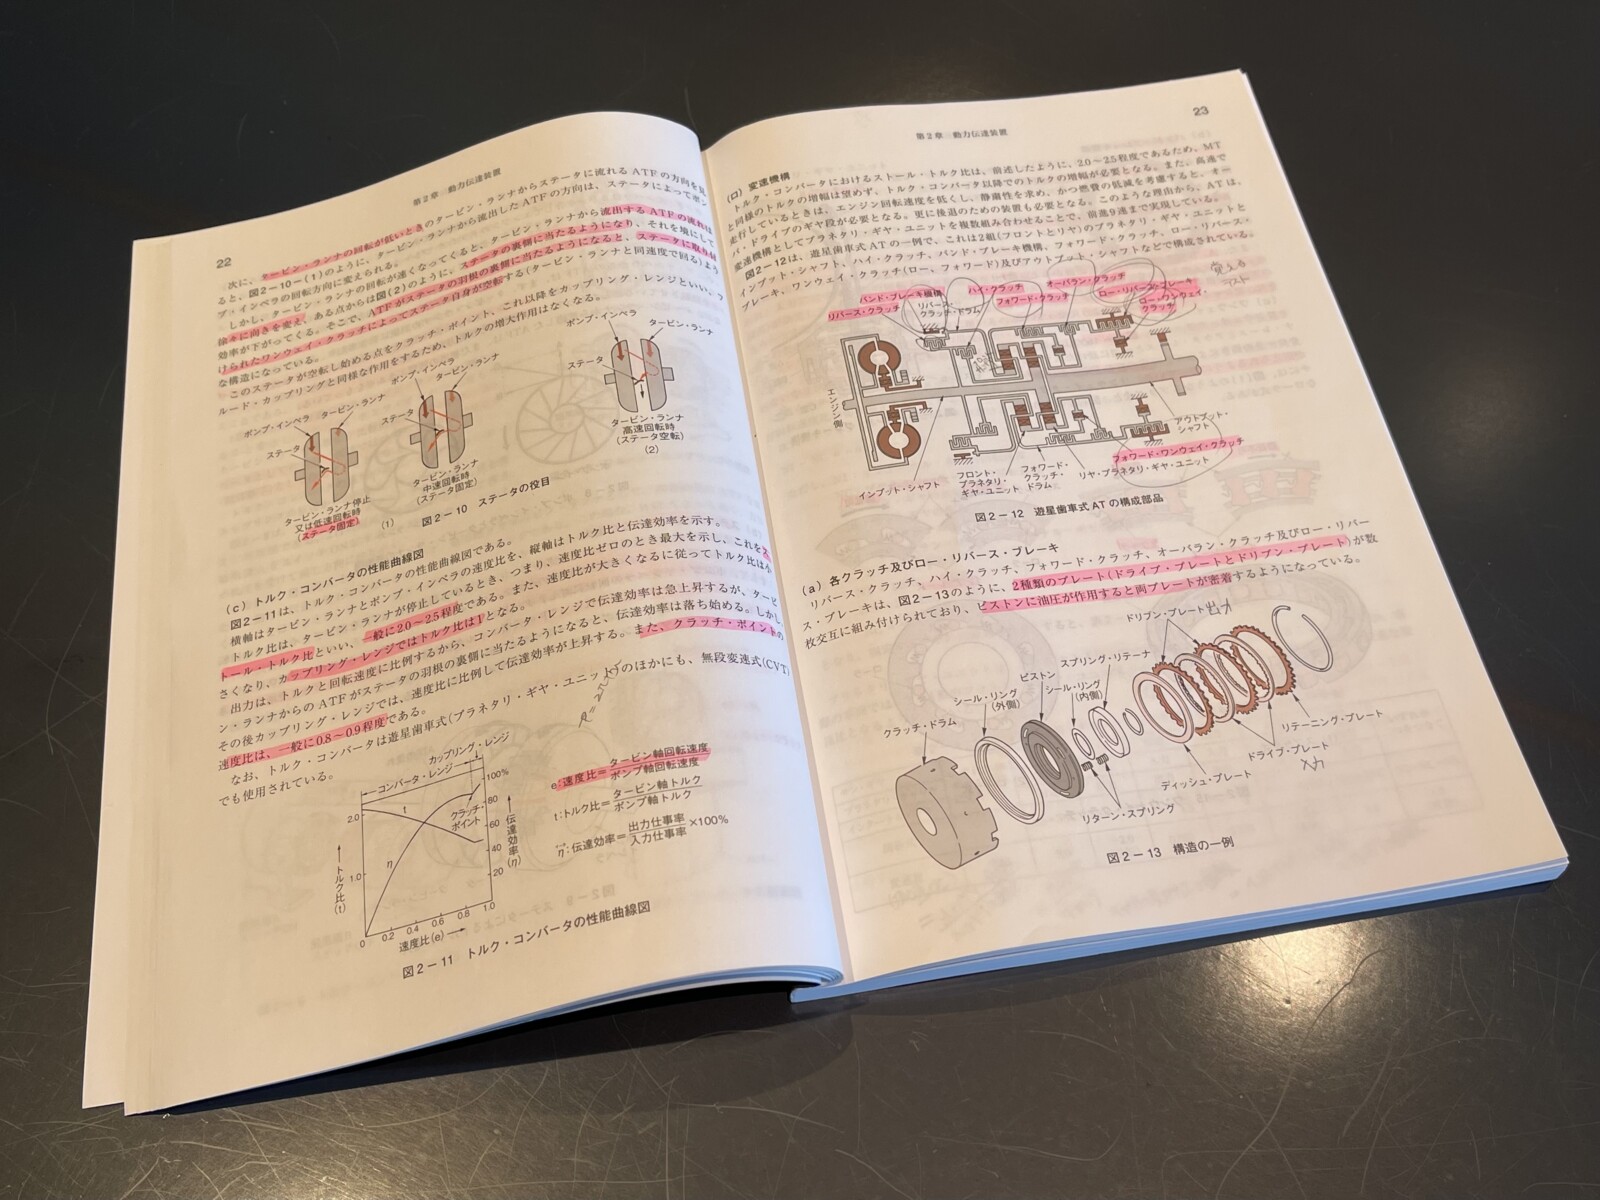 22
第2章 動力伝達装置
次に、タービン・ランナの回転が低いときのタービン・ランナからステータに流れるATFの方向を見
ると、図2-10-(1)のように、タービン・ランナから流出したATFの方向は、ステータによってポン
プ・インペラの回転方向に変えられる。
しかし、タービン・ランナの回転が速くなってくると、タービン・ランナから流出するATFの流れは
徐々に向きを変え、ある点からは図(2)のように、ステータの裏側に当たるようになり、それを境にして
効率が下がってくる。そこで、ATFがステータの羽根の裏側に当たるようになると、ステータに取り付
けられたワンウェイ・クラッチによってステータ自身が空転する(タービン・ランナと同速度で回る)よう
な構造になっている。
このステータが空転し始める点をクラッチ・ポイント、これ以降をカップリング・レンジといい、フ
ルード・カップリングと同様な作用をするため、トルクの増大作用はなくなる。
ポンプ・インペラ
タービン・ランナ
ステータ
タービン・ランナ停止
又は低速回転時
(ステータ固定)
ポンプ・インペラ
タービン・ランナ
ステータ
タービン・ランナ
中速回転時
(ステータ固定)
(1)
ポンプ・インペラ
タービン・ランナ
ステータ
タービン・ランナ
高速回転時
(ステータ空転)
(2)
図2-10 ステータの役目
(c) トルク・コンバータの性能曲線図
図2-11は、トルク・コンバータの性能曲線図である。
横軸はタービン・ランナとポンプ・インペラの速度比を、縦軸はトルク比と伝達効率を示す。
トルク比は、タービン・ランナが停止しているとき、つまり、速度比ゼロのとき最大を示し、これをス
トール・トルク比といい、一般に2.0~2.5程度である。また、速度比が大きくなるに従ってトルク比は小
さくなり、カップリング・レンジではトルク比は1となる。
出力は、トルクと回転速度に比例するから、コンバータ・レンジで伝達効率は急上昇するが、タービ
ン・ランナからのATFがステータの羽根の裏側に当たるようになると、伝達効率は落ち始める。しかし、
その後カップリング・レンジでは、速度比に比例して伝達効率が上昇する。また、クラッチ・ポイントの
速度比は、一般に0.8~0.9程度である。
なお、トルク・コンバータは遊星歯車式(プラネタリ・ギヤ・ユニット)のほかにも、無段変速式(CVT)
でも使用されている。
カップリング・レンジ
コンバータ・レンジ
100%
80
60
40
20
2.0
1.0
t
η
クラッチ
ポイント
トルク比(t)
伝達効率(η)
0 0.2 0.4 0.6 0.8 1.0
速度比(e)
e:速度比=タービン軸回転速度/ポンプ軸回転速度
t:トルク比=タービン軸トルク/ポンプ軸トルク
η:伝達効率=出力仕事率/入力仕事率×100%
図2-11 トルク・コンバータの性能曲線図
23
第2章 動力伝達装置
(ロ) 変速機構
トルク・コンバータにおけるストール・トルク比は、前述したように、2.0~2.5程度であるため、MT
と同様のトルクの増幅は望めず、トルク・コンバータ以降でのトルクの増幅が必要となる。また、高速で
走行しているときは、エンジン回転速度を低くし、静粛性を求め、かつ燃費の低減を考慮すると、オー
バ・ドライブのギヤ段が必要となる。更に後退のための装置も必要となる。このような理由から、ATは、
変速機構としてプラネタリ・ギヤ・ユニットを複数組み合わせることで、前進9速まで実現している。
図2-12は、遊星歯車式ATの一例で、これは2組(フロントとリヤ)のプラネタリ・ギヤ・ユニットと
インプット・シャフト、ハイ・クラッチ、バンド・ブレーキ機構、フォワード・クラッチ、ロー・リバース・
ブレーキ、ワンウェイ・クラッチ(ロー、フォワード)及びアウトプット・シャフトなどで構成されている。
覚える
バンド・ブレーキ機構
リバース・クラッチ
リバース・
クラッチ・ドラム
ハイ・クラッチ
フォワード・クラッチ
オーバラン・クラッチ
ロー・リバース・ブレーキ
ロー・ワンウェイ・
クラッチ
エンジン側
インプット・シャフト
フロント・
プラネタリ・
ギヤ・ユニット
フォワード・
クラッチ・
ドラム
リヤ・プラネタリ・ギヤ・ユニット
フォワード・ワンウェイ・クラッチ
アウトプット・
シャフト
図2-12 遊星歯車式ATの構成部品
(a) 各クラッチ及びロー・リバース・ブレーキ
リバース・クラッチ、ハイ・クラッチ、フォワード・クラッチ、オーバラン・クラッチ及びロー・リバー
ス・ブレーキは、図2-13のように、2種類のプレート(ドライブ・プレートとドリブン・プレート)が数
枚交互に組み付けられており、ピストンに油圧が作用すると両プレートが密着するようになっている。
クラッチ・ドラム
シール・リング
(外側)
ピストン
シール・リング
(内側)
スプリング・リテーナ
ドリブン・プレート 出力
リテーニング・プレート
ドライブ・プレート
入力
ディッシュ・プレート
リターン・スプリング
図2-13 構造の一例